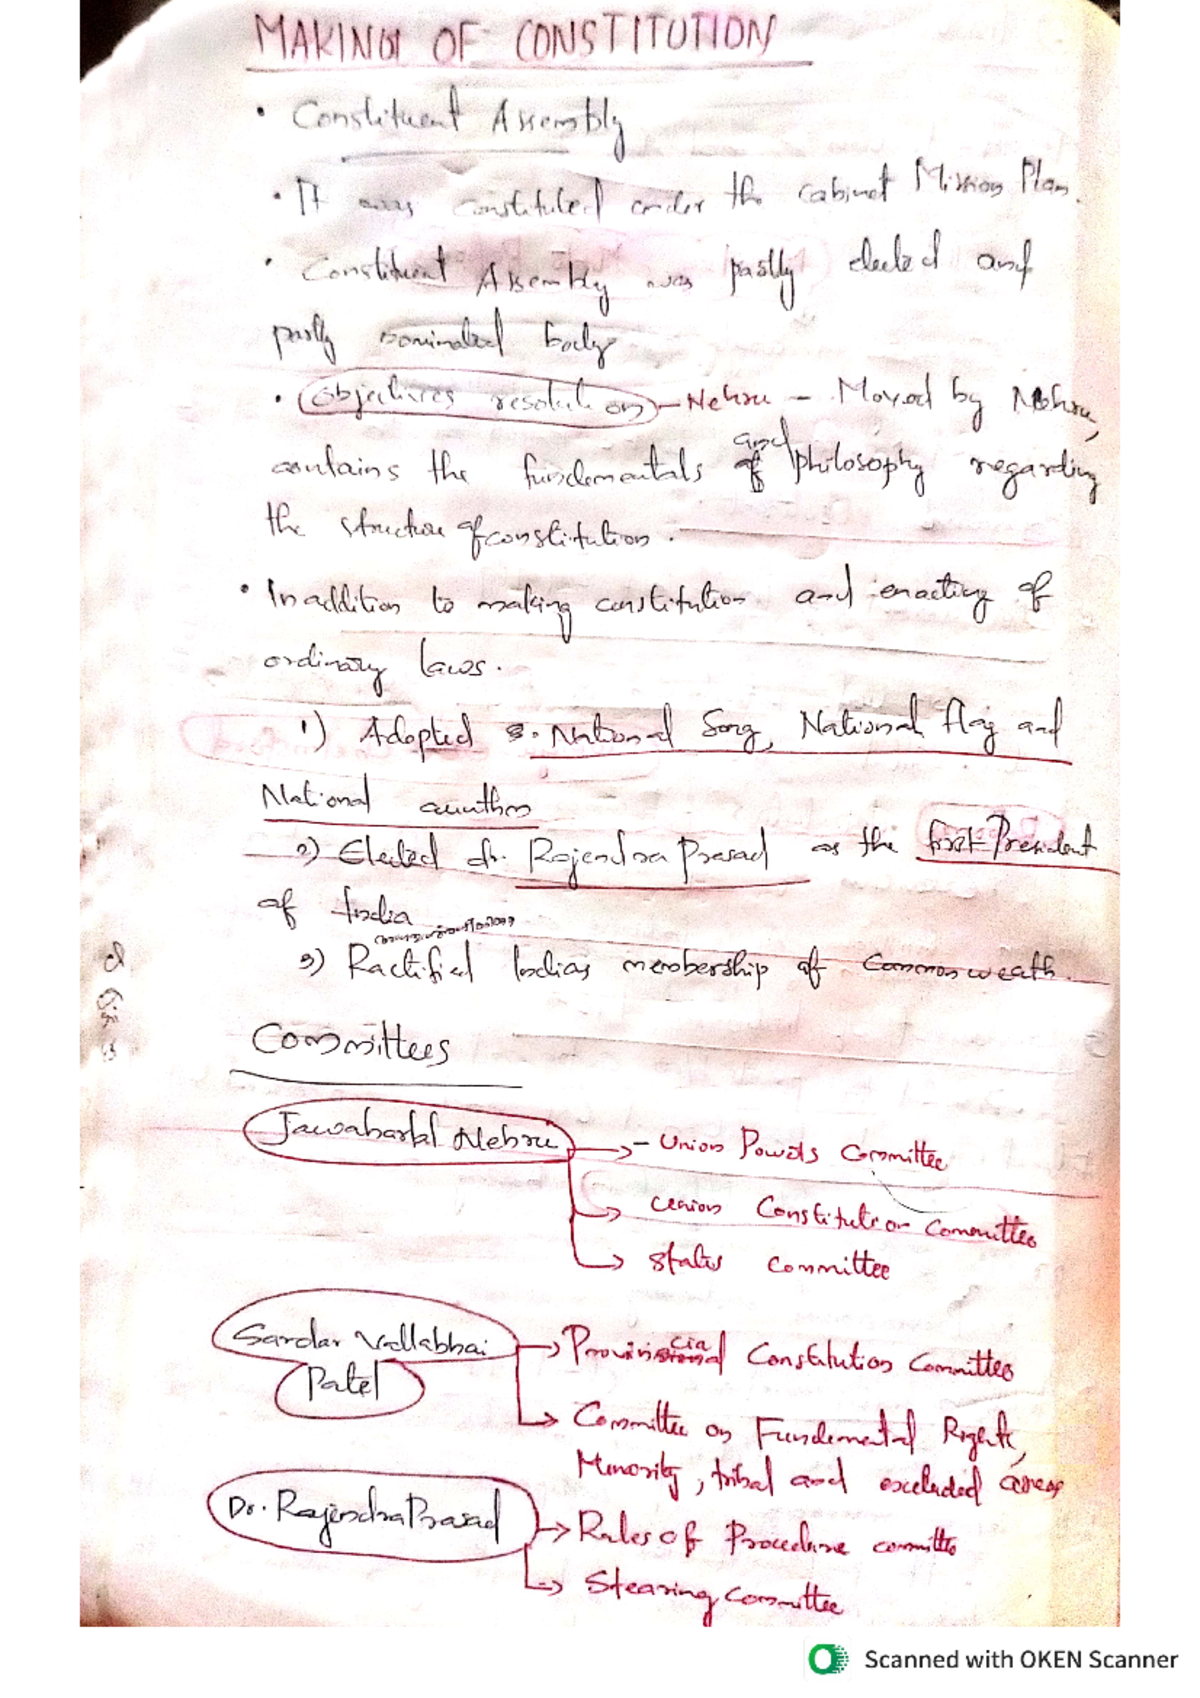 MAKING OF CONSTITUTION
• Constituent Assembly
• It was constituted under the cabinet Mission Plan.
• Constituent Assembly was partly elected and
partly nominated body
• Objectives resolution - Nehru - Moved by Nehru,
contains the fundementals and philosophy regarding
the structure of constitution.
• In addition to making constitution and enacting of
ordinary laws.
1) Adopted National Song, National flag and
National aunthm
2) Elected dr. Rajendra Prasad as the first President
of India
3) Ractified Indias membership of Commonweath.
Committees
Jawaharlal Nehru → - Union Powers Committee
→ Union Constitution Committee
→ States committee
Sardar Vallabhai → Provincial Constitution Committee
Patel
→ Committee on Fundemental Rights,
Minority, tribal and excluded areas
Dr. Rajendra Prasad → Rules of Procedure committe
→ Stearing Committee
Scanned with OKEN Scanner